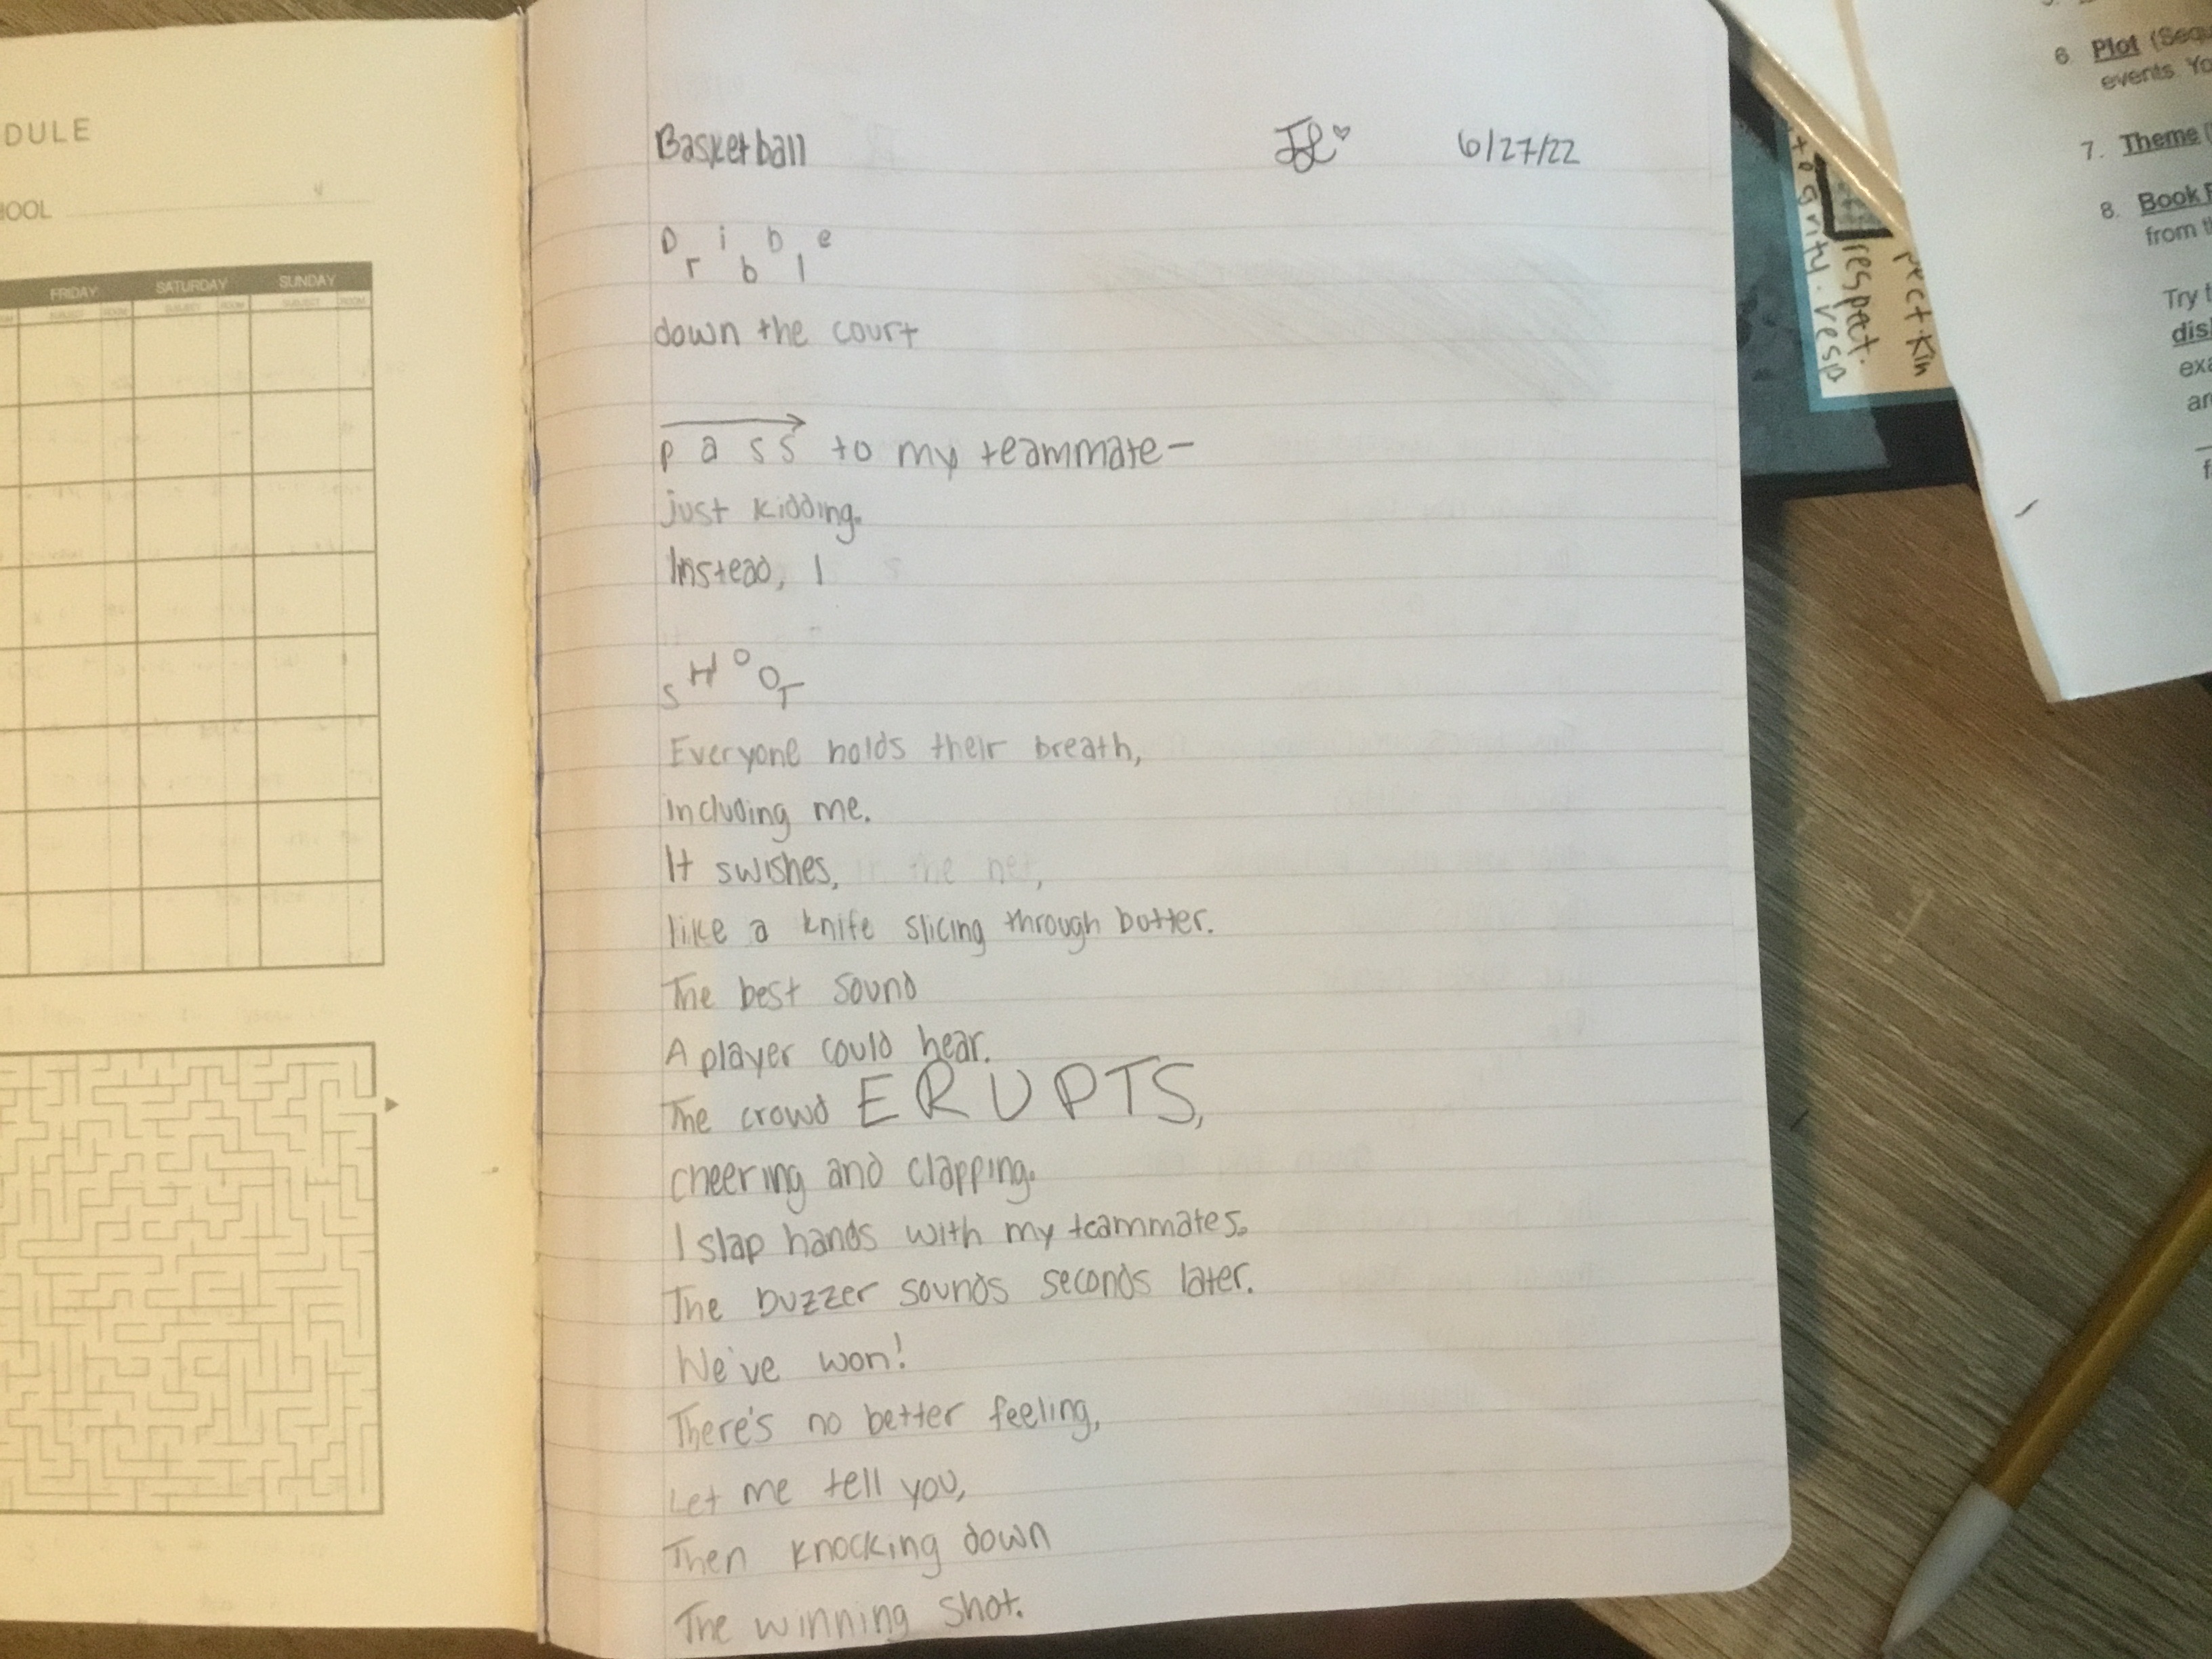 DULE
FRIDAY SATURDAY SUNDAY
SUBJECT ROOM SUBJECT ROOM SUBJECT ROOM
Basketball 6/27/22
Dribble
down the court
pass to my teammate-
just kidding.
Instead, I
sHOOT
Everyone holds their breath,
including me.
It swishes, in the net,
like a knife slicing through butter.
The best sound
A player could hear.
The crowd ERUPTS,
cheering and clapping.
I slap hands with my teammates.
The buzzer sounds seconds later.
We've won!
There's no better feeling,
Let me tell you,
Then knocking down
The winning shot.
6. Plot
events
7. Theme
8. Book
from
Try
respect.